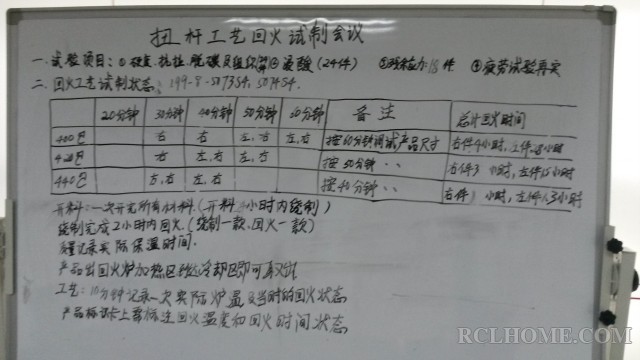 扭杆工艺回火试制会议
一.试验项目:①硬度.抗拉.脱碳及组织 (24件) ②残余应力15件 ③疲劳试验再实
二.回火工艺试制状态: 199-8-5073SA. 5074SA.
20分钟 30分钟 40分钟 50分钟 60分钟 备注 总计回火时间
400℃ 右 右 左.右 左.右 按60分钟调试产品尺寸 右件4小时,
420℃ 右 左.右 左.右 按50分钟 〃 右件3 小时,左件1.5小时
440℃ 左.右 左.右 按40分钟 〃 右件 小时,左件 小时
开料:一次开完所有材料.(开料 小时内绕制)
绕制完成2小时内回火.(绕制一款.回火一款)
记录实际保温时间.
产品出回火炉加热区 冷却区即可
工艺:10分钟记录一次实际炉温及当时的回火状态
产品标识卡上要标注回火温度和回火时间状态
RCLHOME.COM